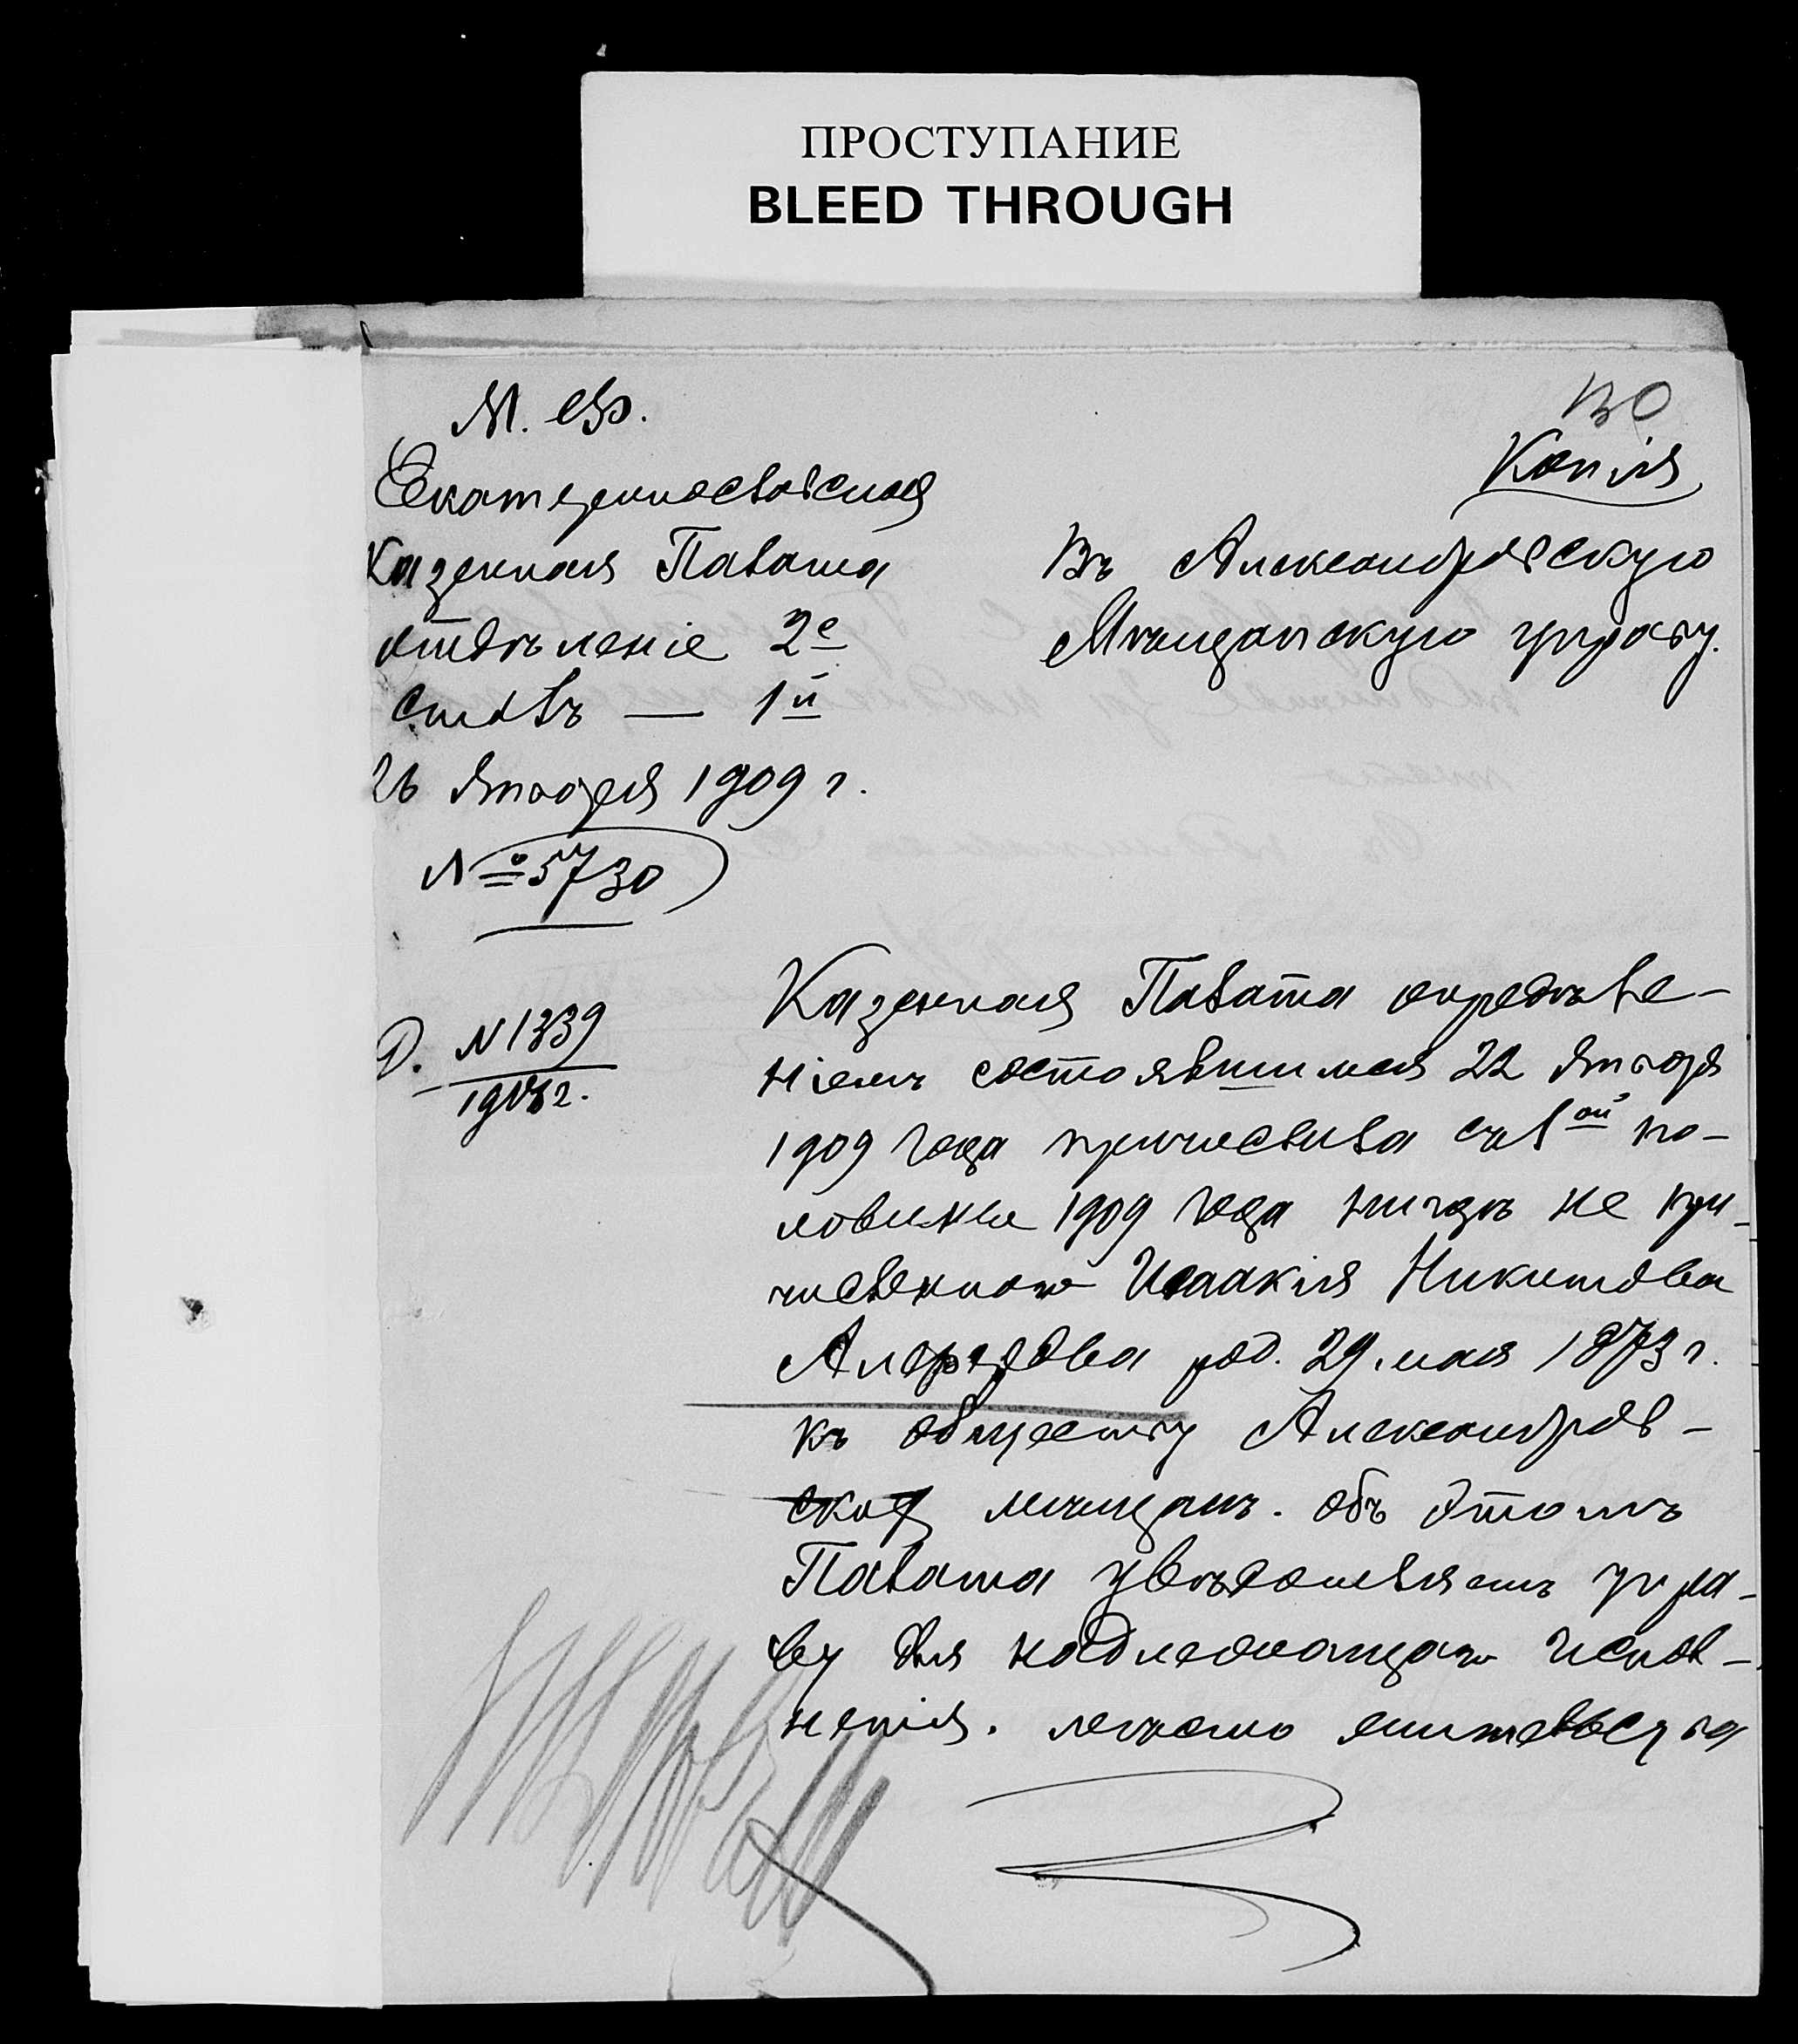 ПРОСТУПАНИЕ
BLEED THROUGH
М. Ф.
130
Копія
Екатеринославская
Казенная Палата
отдѣленіе 2е
столъ — 1й
26 января 1909 г.
№ 5730
Въ Александровскую
Мѣщанскую управу.
Д. N 1339
Казенная Палата опредѣле-
ніемъ состоявшимся 22 января
1909 года причислила съ 1ой по-
ловины 1909 года нигдѣ не при-
численнаго Исаакія Никитова
род. 29 мая 1873 г.
къ обществу Александров-
скихъ мѣщанъ. Объ этомъ
Палата увѣдомляетъ упра-
ву для надлежащаго испол-
ненія. жительства